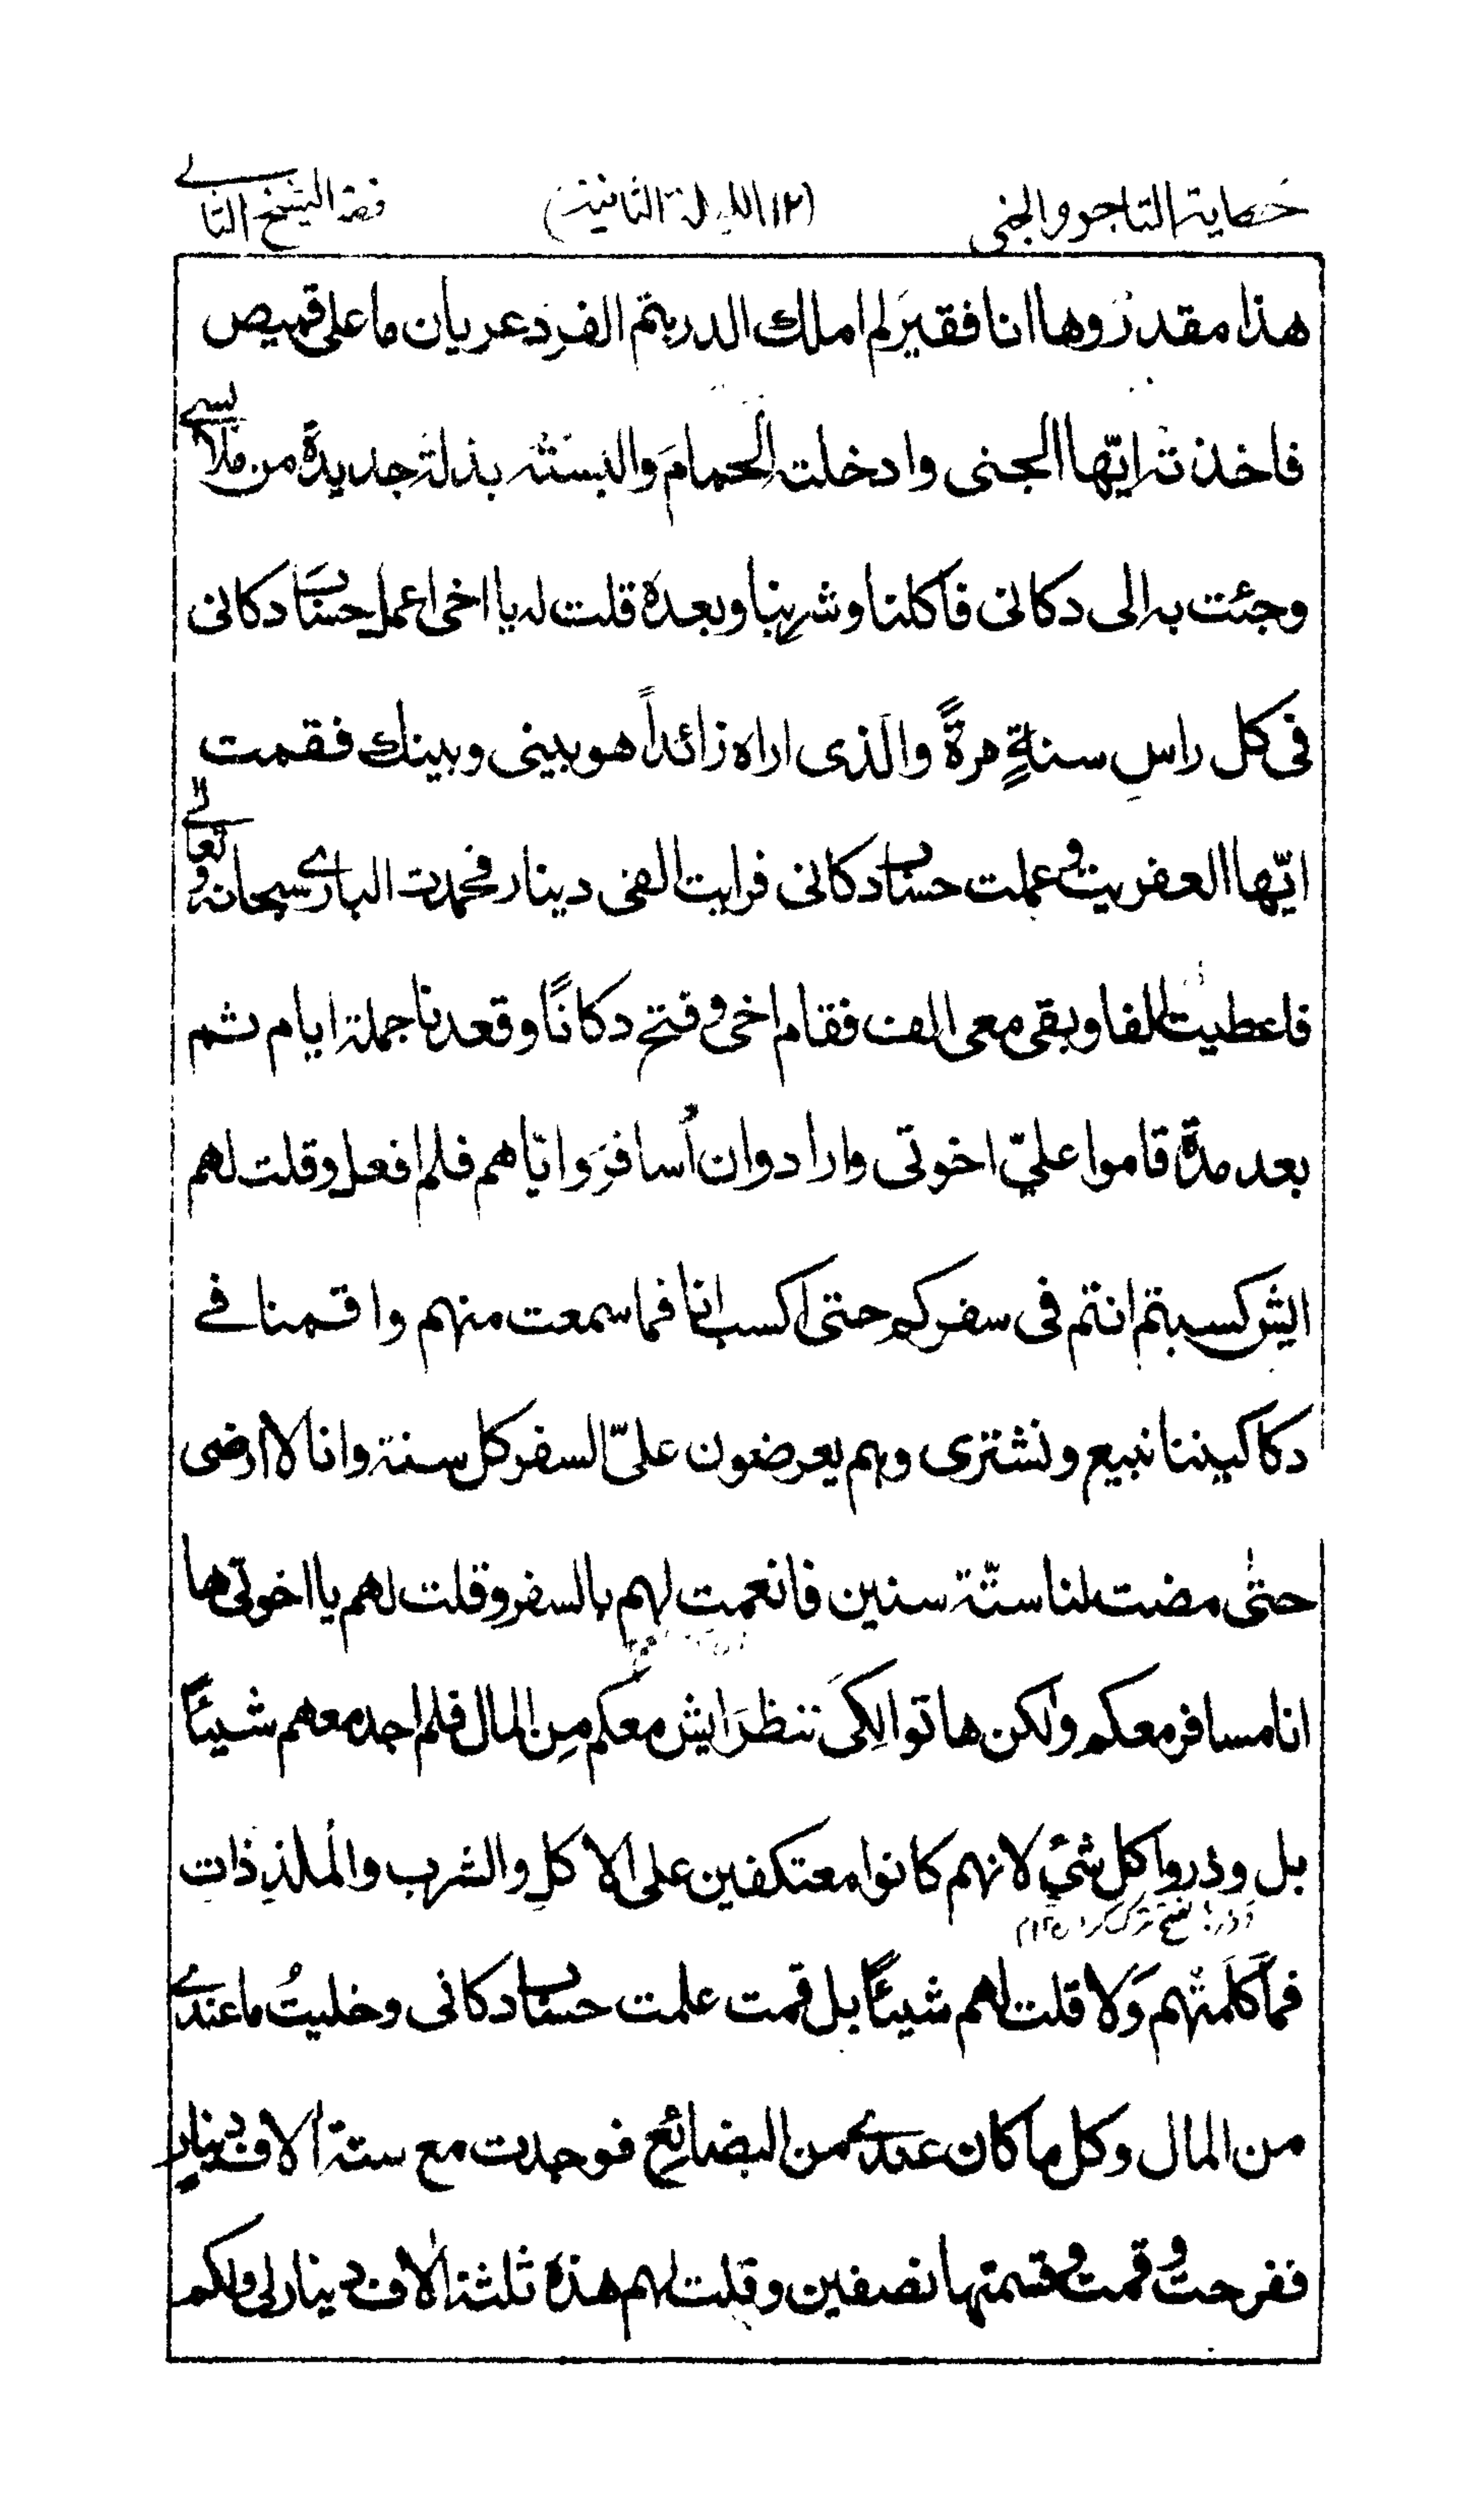 حكاية التاجر والجنى (١٢) الليلة الثانية قصة الشيخ الثانے
هذا مقدرٌ وها انا فقيرَ لم املك الدرهم الفرد عريان ما على قميص
فاخذته ايّها الجنى وادخلته الحمامَ والبسته بذلةً جديدةً من ملابسے
وجئت به الى دكانى فاكلنا وشربنا وبعده قلت له يا اخى اعمل حساب دكانى
فى كل راسِ سنةٍ مرةً والذى اراه زائداً هو بينى وبينك فقمت
ايّها العفريت وعملت حساب دكانى فرايت الفى دينار فحمدت البارے سبحانه وتعالے
فاعطيته الفا وبقى معى الف فقام اخى وفتح دكانًا وقعدنا جملة ايام ثم
بعد مدة قاموا عليّ اخوتى وارادوا ان اُسافرَ واياهم فلم افعل وقلت لهم
ايش كسبتم انتم فى سفركم حتى اكسب انا فما سمعت منهم واقمنا فے
دكاكيننا نبيع ونشترى وهم يعرضون علىّ السفر كل سنة وانا لا ارضى
حتٰى مضت لنا ستّة سنين فانعمت لهم بالسفر وقلت لهم يا اخوتى ها
انا مسافر معكم ولكن هاتوا لكىَ ننظرَ ايش معكم مِن المال فلم اجد معهم شيئًا
بل وذروا كل شئٍ لانهم كانوا معتكفين على الاكلِ والشرب والملذذاتِ
فما كلمتهم وَلا قلت لهم شيئًا بل قمت علمت حساب دكانى وخليتُ ما عندے
من المال وكل ما كان عندے من البضائع فوجدت مع ستة الاف دينار
ففرحتُ وقمت وقسمتها نصفين وقلت لهم هذه ثلثة الاف دينار لى ولكم